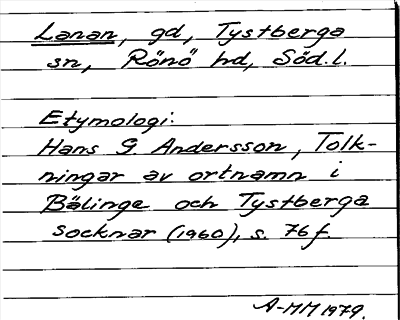 Lanan, gd, Tystberga
sn, Rönö hd, Söd.l.
Etymologi:
Hans G. Andersson, Tolk-
ningar av ortnamn i
Bälinge och Tystberga
socknar (1960), s. 76 f.
A-MM 1979.